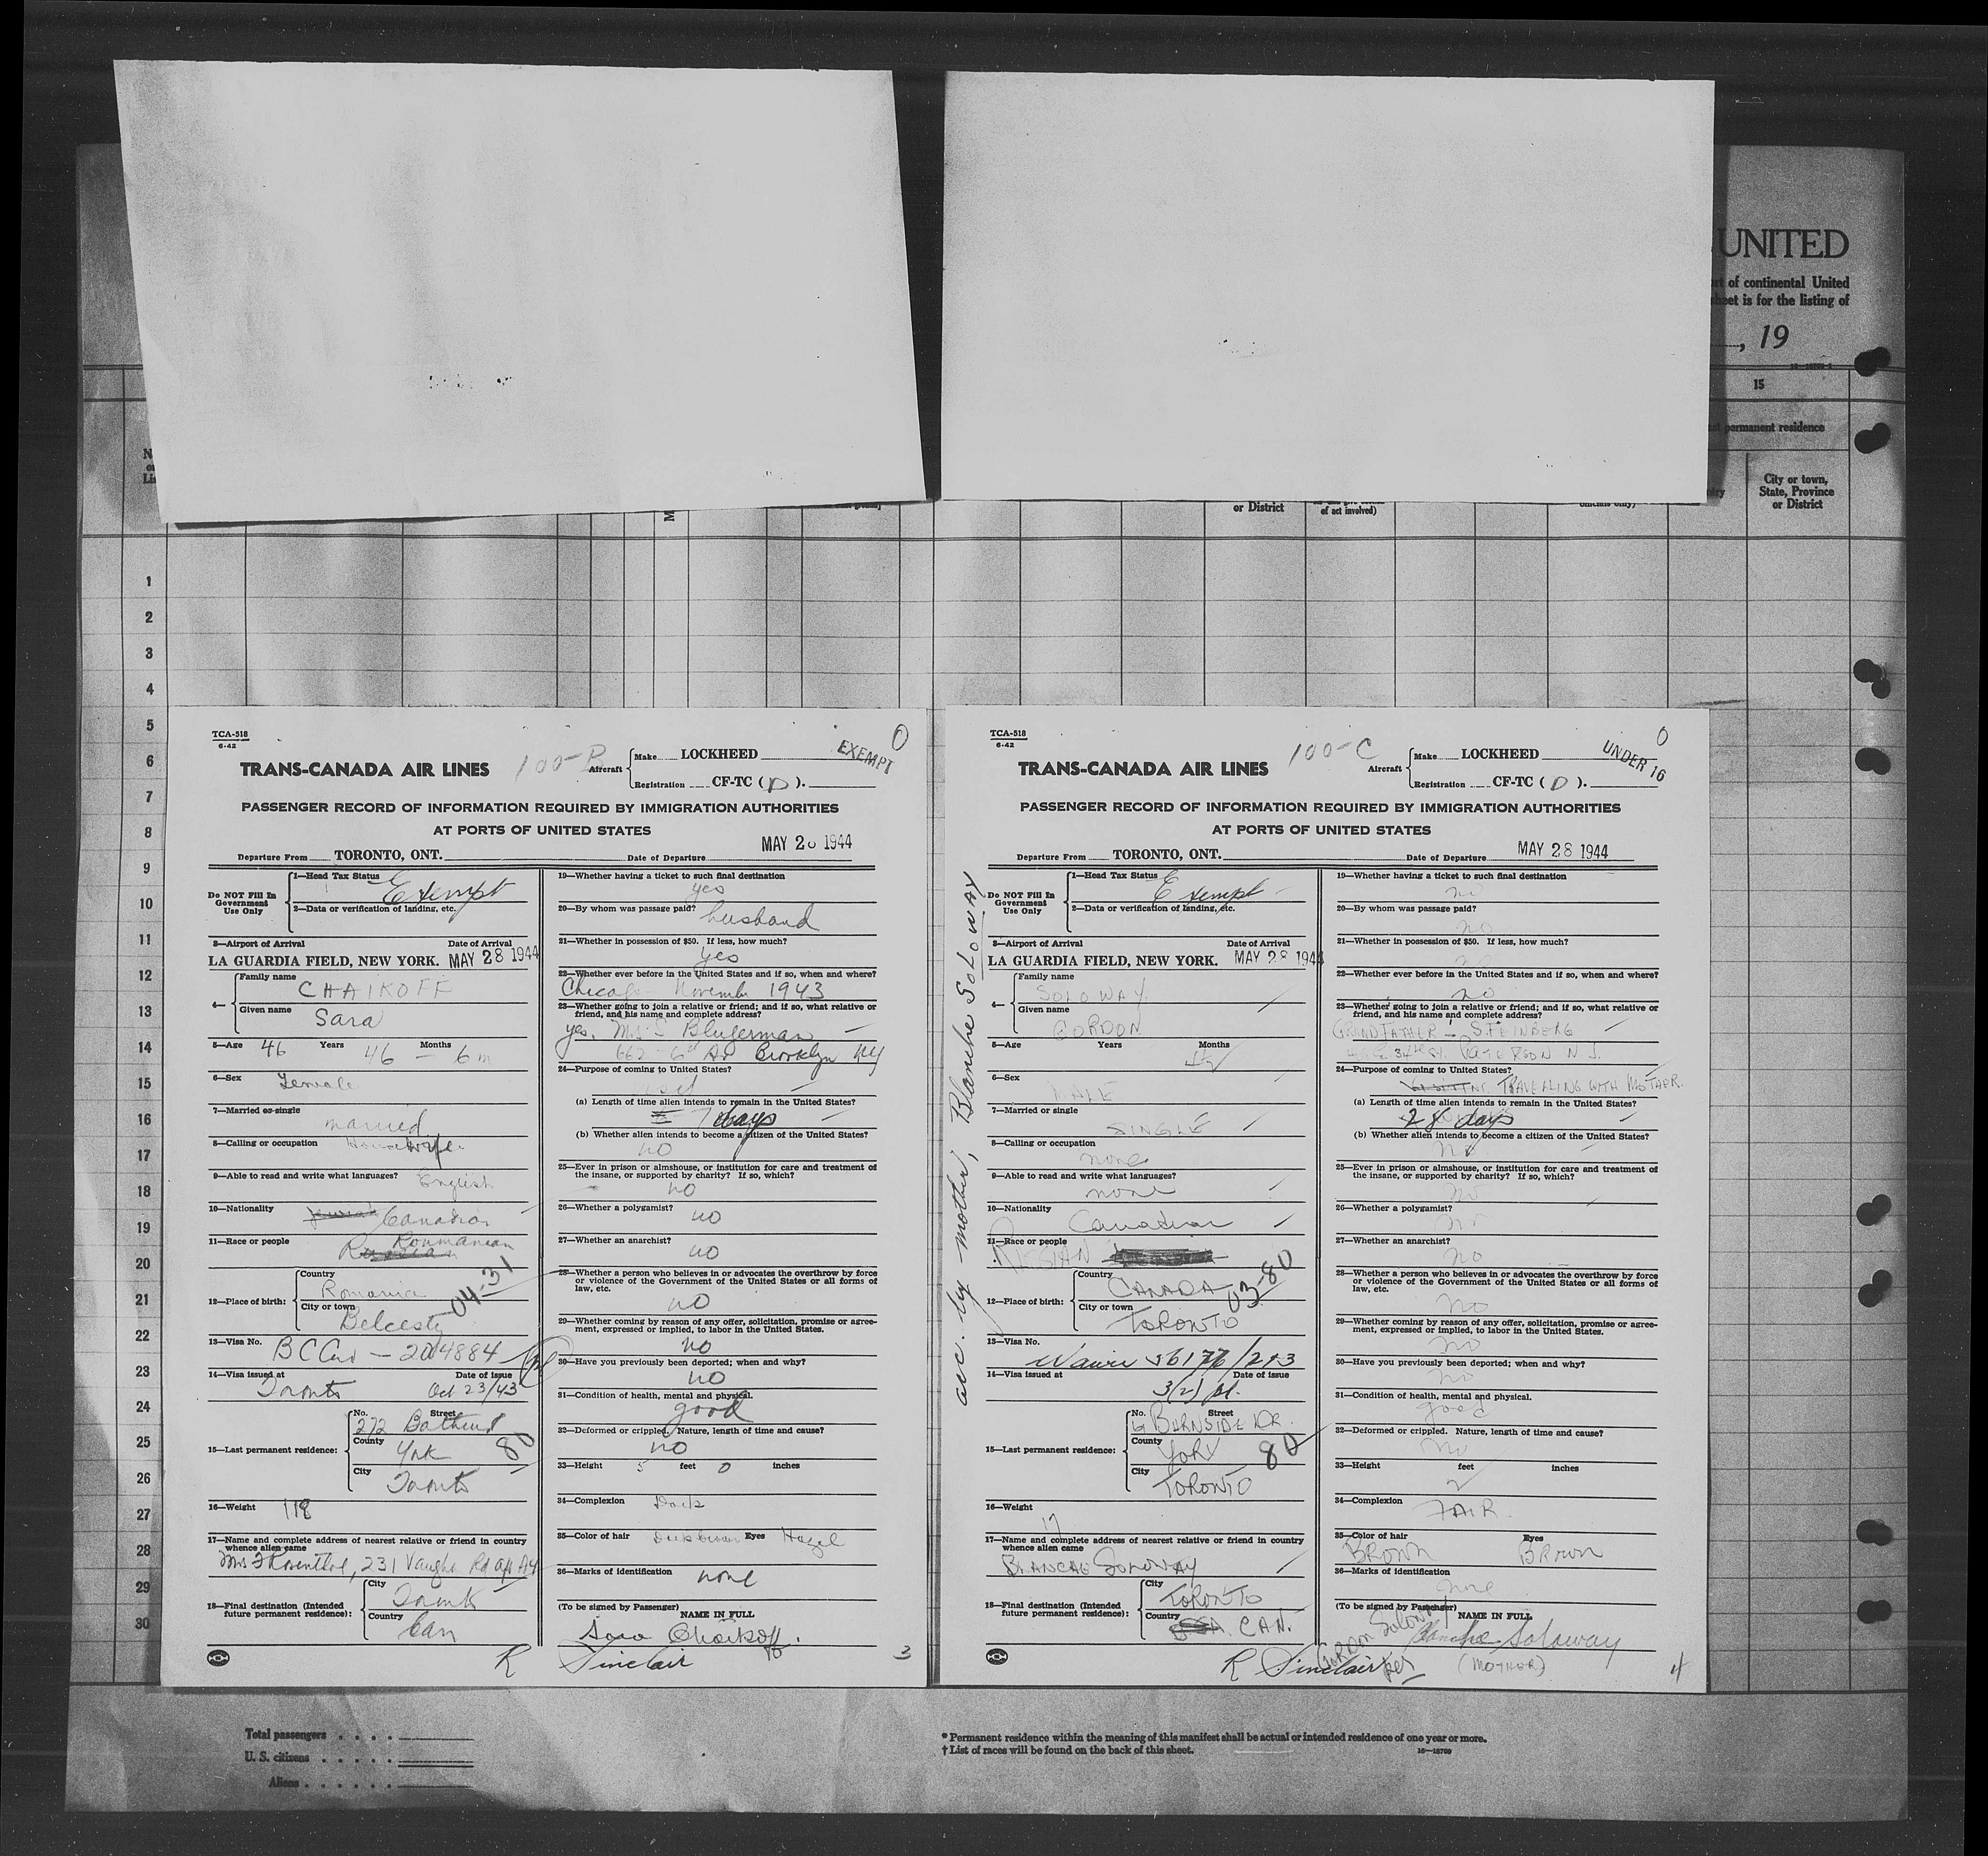 UNITED
of continental United
sheet is for the listing of
, 19
15
permanent residence
City or town,
State, Province
or District
or District
of act involved)
officials only)
1
2
3
4
5
6
7
8
9
10
11
12
13
14
15
16
17
18
19
20
21
22
23
24
25
26
27
28
29
30
TCA-518
6-42
100-B
EXEMPT
0
TRANS-CANADA AIR LINES
Aircraft
Make LOCKHEED
Registration CF-TC (D).
PASSENGER RECORD OF INFORMATION REQUIRED BY IMMIGRATION AUTHORITIES
AT PORTS OF UNITED STATES
MAY 28 1944
Departure From TORONTO, ONT. Date of Departure
Do NOT Fill In Government Use Only
1—Head Tax Status Exempt
2—Data or verification of landing, etc.
3—Airport of Arrival Date of Arrival
LA GUARDIA FIELD, NEW YORK. MAY 28 1944
4— Family name CHAIKOFF
Given name Sara
5—Age 46 Years 46 - 6 m Months
6—Sex Female
7—Married or single married
8—Calling or occupation Housewife
9—Able to read and write what languages? English
10—Nationality Canadian
11—Race or people Roumanian
12—Place of birth: Country Romania
City or town Belcesty
04-31
13—Visa No. BC Card - 204884
14—Visa issued at Toronto Date of issue Oct 23/43
15—Last permanent residence: No. 272 Street Bathurst
County York 80
City Toronto
16—Weight 118
17—Name and complete address of nearest relative or friend in country
whence alien came
Mrs , 231 Vaughn Rd ap A4
18—Final destination (Intended
future permanent residence): City Toronto
Country Can
19—Whether having a ticket to such final destination
yes
20—By whom was passage paid? husband
21—Whether in possession of $50. If less, how much?
yes
22—Whether ever before in the United States and if so, when and where?
Chicago November 1943
23—Whether going to join a relative or friend; and if so, what relative or
friend, and his name and complete address?
yes. Mrs Blugerman
Brooklyn NY
24—Purpose of coming to United States?
visit
(a) Length of time alien intends to remain in the United States?
7 days
(b) Whether alien intends to become a citizen of the United States?
no
25—Ever in prison or almshouse, or institution for care and treatment of
the insane, or supported by charity? If so, which?
no
26—Whether a polygamist? no
27—Whether an anarchist? no
28—Whether a person who believes in or advocates the overthrow by force
or violence of the Government of the United States or all forms of
law, etc.
no
29—Whether coming by reason of any offer, solicitation, promise or agree-
ment, expressed or implied, to labor in the United States.
no
30—Have you previously been deported; when and why?
no
31—Condition of health, mental and physical.
good
32—Deformed or crippled. Nature, length of time and cause?
no
33—Height 5 feet 0 inches
34—Complexion Dark
35—Color of hair Dark brown Eyes Hazel
36—Marks of identification none
(To be signed by Passenger) NAME IN FULL
Sara Chaikoff.
R Sinclair
3
TCA-518
6-42
100-C
UNDER 16
0
TRANS-CANADA AIR LINES
Aircraft
Make LOCKHEED
Registration CF-TC (D).
PASSENGER RECORD OF INFORMATION REQUIRED BY IMMIGRATION AUTHORITIES
AT PORTS OF UNITED STATES
MAY 28 1944
Departure From TORONTO, ONT. Date of Departure
acc. by mother, Blanche SOLOWAY
Do NOT Fill In Government Use Only
1—Head Tax Status Exempt
2—Data or verification of landing, etc.
3—Airport of Arrival Date of Arrival
LA GUARDIA FIELD, NEW YORK. MAY 28 1944
4— Family name SOLOWAY
Given name GORDON
5—Age Years Months
6—Sex MALE
7—Married or single SINGLE
8—Calling or occupation none
9—Able to read and write what languages? none
10—Nationality Canadian
11—Race or people RUSSIAN
12—Place of birth: Country CANADA
City or town TORONTO
03-80
13—Visa No.
14—Visa issued at Date of issue
15—Last permanent residence: No. Street BURNSIDE DR.
County YORK 80
City TORONTO
16—Weight 17
17—Name and complete address of nearest relative or friend in country
whence alien came
BLANCHE SOLOWAY
18—Final destination (Intended
future permanent residence): City TORONTO
Country CAN.
19—Whether having a ticket to such final destination
no
20—By whom was passage paid?
no
21—Whether in possession of $50. If less, how much?
no
22—Whether ever before in the United States and if so, when and where?
no
23—Whether going to join a relative or friend; and if so, what relative or
friend, and his name and complete address?
GRANDFATHER - STEINBERG
34th ST. PATERSON N J.
24—Purpose of coming to United States?
VISITING TRAVELLING WITH MOTHER.
(a) Length of time alien intends to remain in the United States?
28 days
(b) Whether alien intends to become a citizen of the United States?
no
25—Ever in prison or almshouse, or institution for care and treatment of
the insane, or supported by charity? If so, which?
no
26—Whether a polygamist?
no
27—Whether an anarchist?
no
28—Whether a person who believes in or advocates the overthrow by force
or violence of the Government of the United States or all forms of
law, etc.
no
29—Whether coming by reason of any offer, solicitation, promise or agree-
ment, expressed or implied, to labor in the United States.
no
30—Have you previously been deported; when and why?
no
31—Condition of health, mental and physical.
good
32—Deformed or crippled. Nature, length of time and cause?
no
33—Height 2 feet inches
34—Complexion FAIR.
35—Color of hair BROWN Eyes BROWN
36—Marks of identification none
(To be signed by Passenger) NAME IN FULL
Gordon Soloway per Blanche Soloway
(MOTHER)
R Sinclair
4
Total passengers
U. S. citizens
Aliens
* Permanent residence within the meaning of this manifest shall be actual or intended residence of one year or more.
† List of races will be found on the back of this sheet.
16—18709